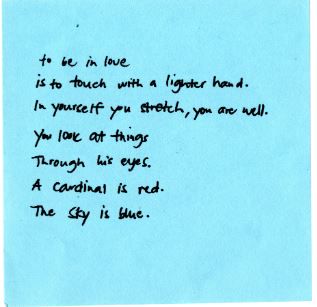 to be in love
is to touch with a lighter hand.
In yourself you stretch, you are well.
You look at things
Through his eyes.
A cardinal is red.
The sky is blue.